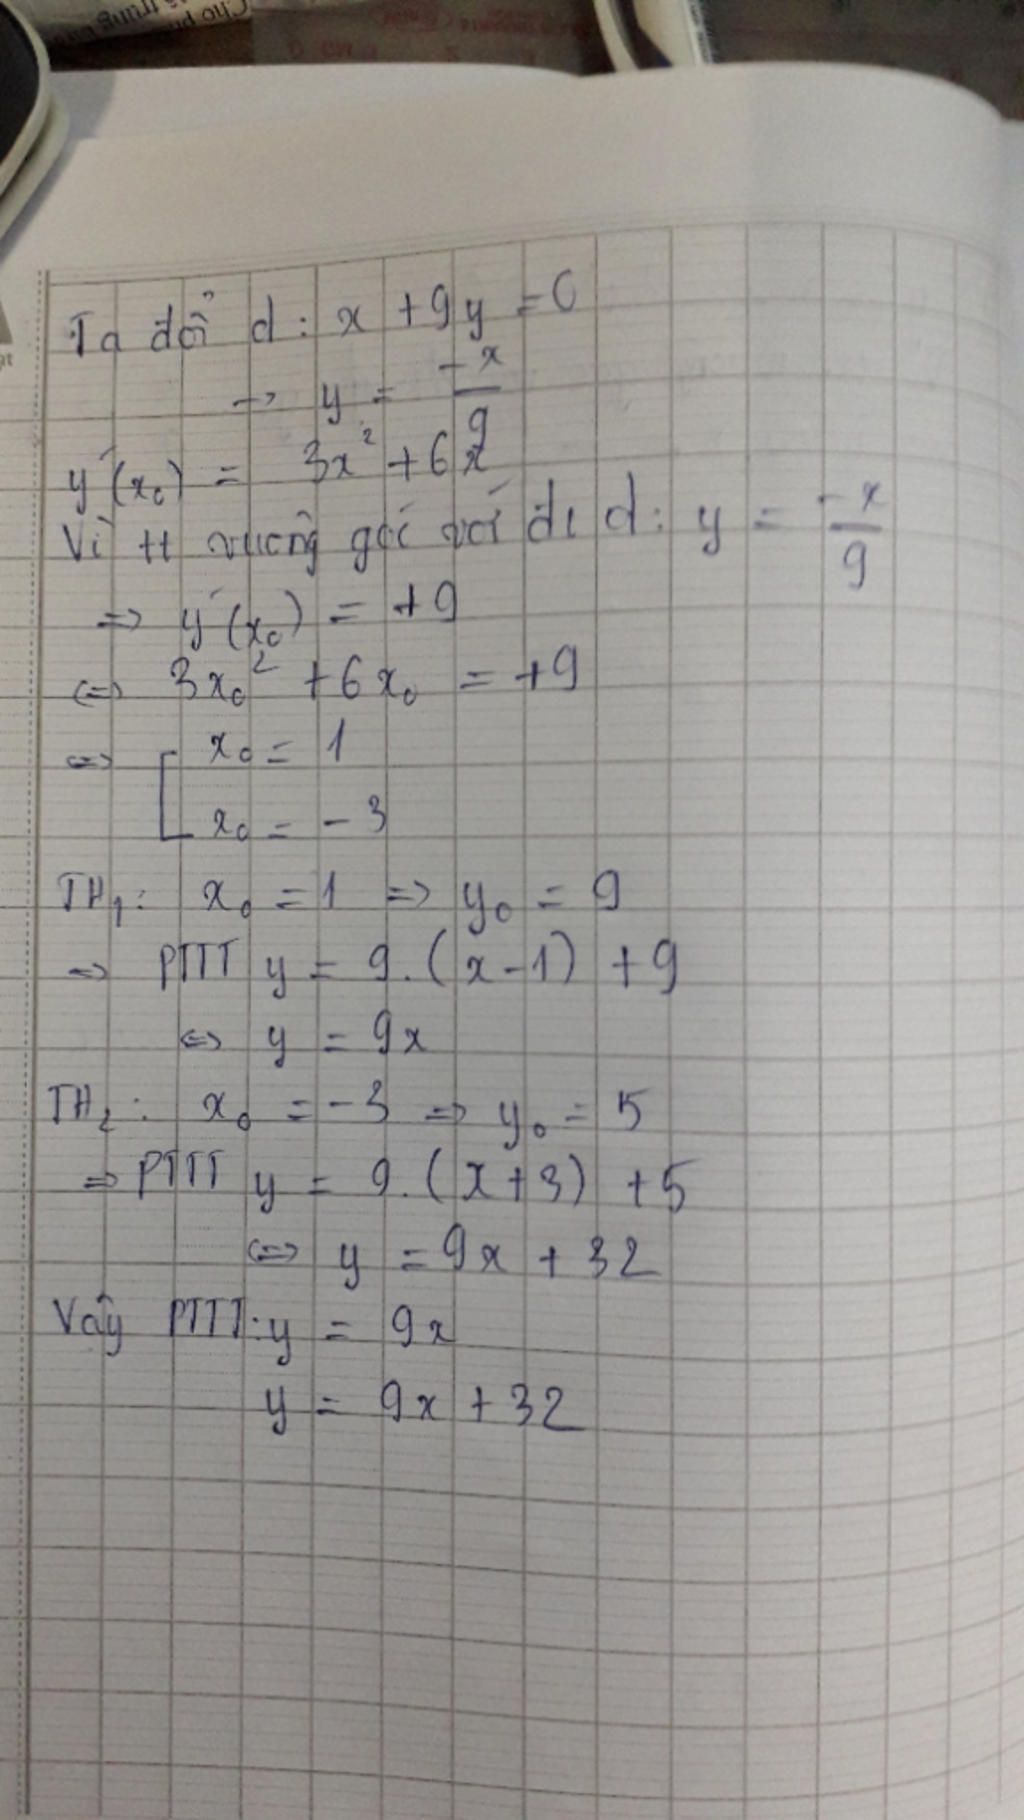 Ta đổi d: x + 9y = 0
→ y = \frac{-x}{9}
y'(x₀) = 3x² + 6x
Vì tt vuông góc với đt d: y = \frac{-x}{9}
=> y'(x₀) = +9
<=> 3x₀² + 6x₀ = +9
<=> [ x₀ = 1
x₀ = -3
TH₁: x₀ = 1 => y₀ = 9
=> PTTT y = 9.(x-1) + 9
<=> y = 9x
TH₂: x₀ = -3 => y₀ = 5
=> PTTT y = 9.(x+3) + 5
<=> y = 9x + 32
Vậy PTTT: y = 9x
y = 9x + 32